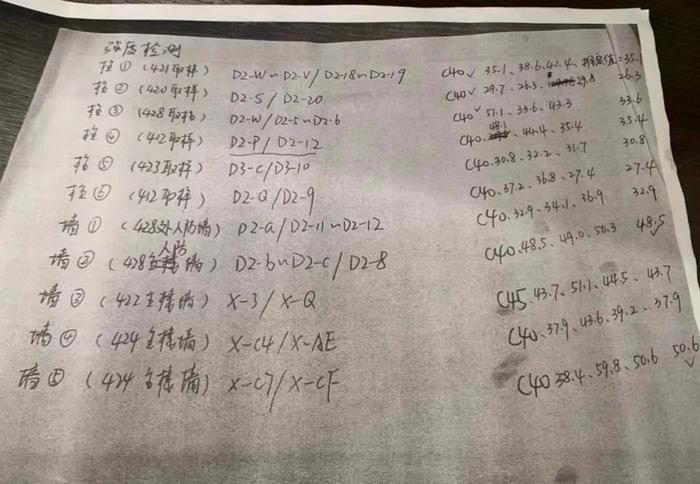 强度检测
柱① (421取样) D2-W~D2-V/D2-18~D2-19 C40✓ 35.1、38.6、41.4、推定值=35.1
柱② (420取样) D2-S/D2-20 C40✓ 29.7、26.3、29.8 26.3
柱③ (428取样) D2-W/D2-5~D2-6 C40✓ 51.1、33.6、43.3 33.6
柱④ (412取样) D2-P/D2-12 C40、48.1、44.4、35.4 35.4
柱⑤ (423取样) D3-C/D3-10 C40、30.8、32.2、31.7 30.8
柱⑥ (412取样) D2-Q/D2-9 C40、37.2、36.8、27.4 27.4
墙① (428外人防墙) D2-a/D2-11~D2-12 C40、32.9、34.1、36.9 32.9
墙② (428人防墙) D2-b~D2-c/D2-8 C40、48.5、49.0、50.3 48.5✓
墙③ (422主楼墙) X-3/X-Q C45、43.7、51.1、44.5、43.7
墙④ (424主楼墙) X-C4/X-AE C40、37.9、43.6、39.2、37.9
墙⑤ (424主楼墙) X-C7/X-CF C40 58.4、59.8、50.6 50.6✓